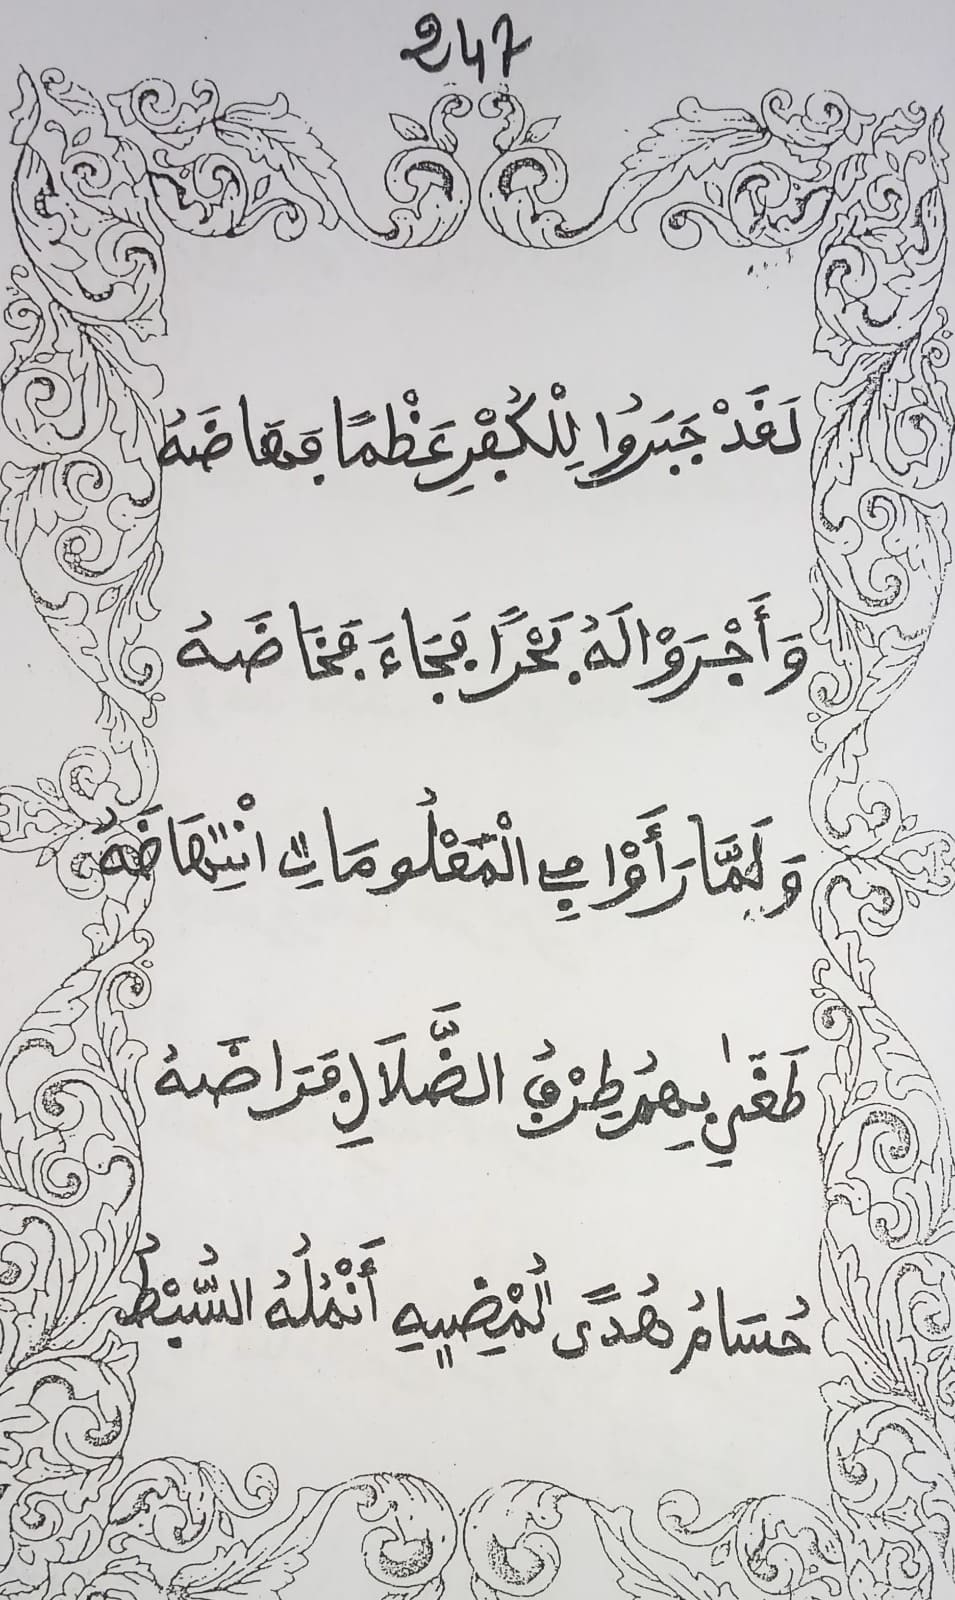 247
لَقَدْ جَبَرُوا لِلْكُفْرِ عَظْمًا فَهَاضَهُ
وَأَجْرَوْا لَهُ بَحْرًا فَجَاءَ فَخَاضَهُ
وَلَمَّا رَأَوْا فِي الْمَعْلُومَاتِ انْتِهَاضَهُ
طَغَىٰ بِهِمُ طِرْفُ الضَّلَالِ فَرَاضَهُ
حُسَامُ هُدًى تُمْضِيهِ أَنْمُلُهُ السُّبْطُ